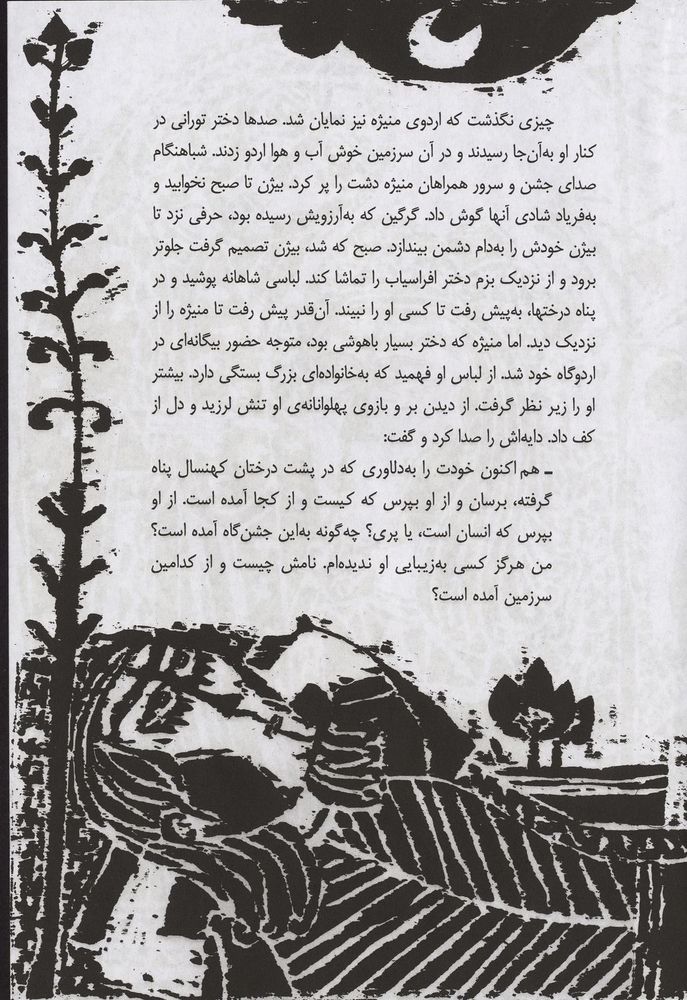 چیزی نگذشت که اردوی منیژه نیز نمایان شد. صدها دختر تورانی در
کنار او به‌آن‌جا رسیدند و در آن سرزمین خوش آب و هوا اردو زدند. شباهنگام
صدای جشن و سرور همراهان منیژه دشت را پر کرد. بیژن تا صبح نخوابید و
به‌فریاد شادی آنها گوش داد. گرگین که به‌آرزویش رسیده بود، حرفی نزد تا
بیژن خودش را به‌دام دشمن بیندازد. صبح که شد، بیژن تصمیم گرفت جلوتر
برود و از نزدیک بزم دختر افراسیاب را تماشا کند. لباسی شاهانه پوشید و در
پناه درختها، به‌پیش رفت تا کسی او را نبیند. آن‌قدر پیش رفت تا منیژه را از
نزدیک دید. اما منیژه که دختر بسیار باهوشی بود، متوجه حضور بیگانه‌ای در
اردوگاه خود شد. از لباس او فهمید که به‌خانواده‌ای بزرگ بستگی دارد. بیشتر
او را زیر نظر گرفت. از دیدن بر و بازوی پهلوانانه‌ی او تنش لرزید و دل از
کف داد. دایه‌اش را صدا کرد و گفت:
ـ هم اکنون خودت را به‌دلاوری که در پشت درختان کهنسال پناه
گرفته، برسان و از او بپرس که کیست و از کجا آمده است. از او
بپرس که انسان است، یا پری؟ چه‌گونه به‌این جشن‌گاه آمده است؟
من هرگز کسی به‌زیبایی او ندیده‌ام. نامش چیست و از کدامین
سرزمین آمده است؟